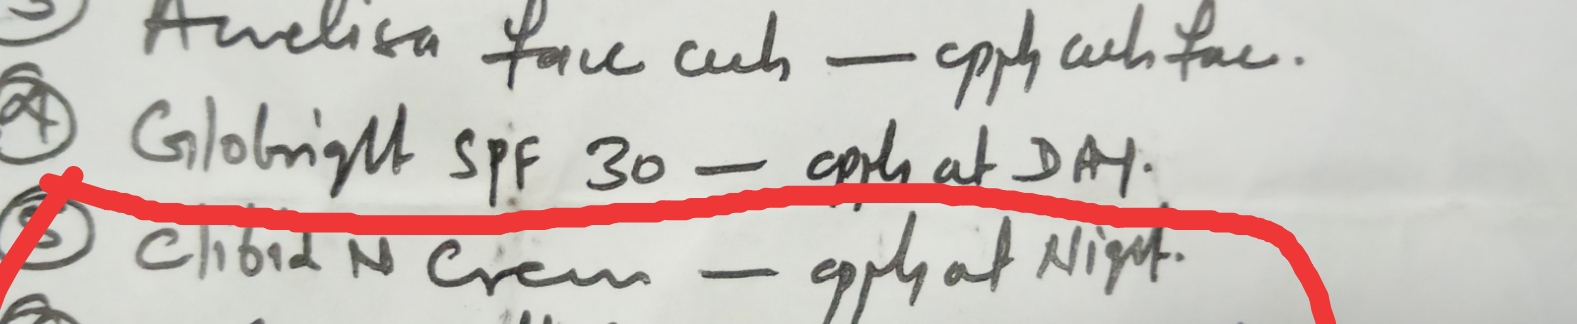 ③ Amelisa face wash — apply wash face.
④ Globright SPF 30 — apply at DAY.
⑤ Clibid N Cream — apply at Night.